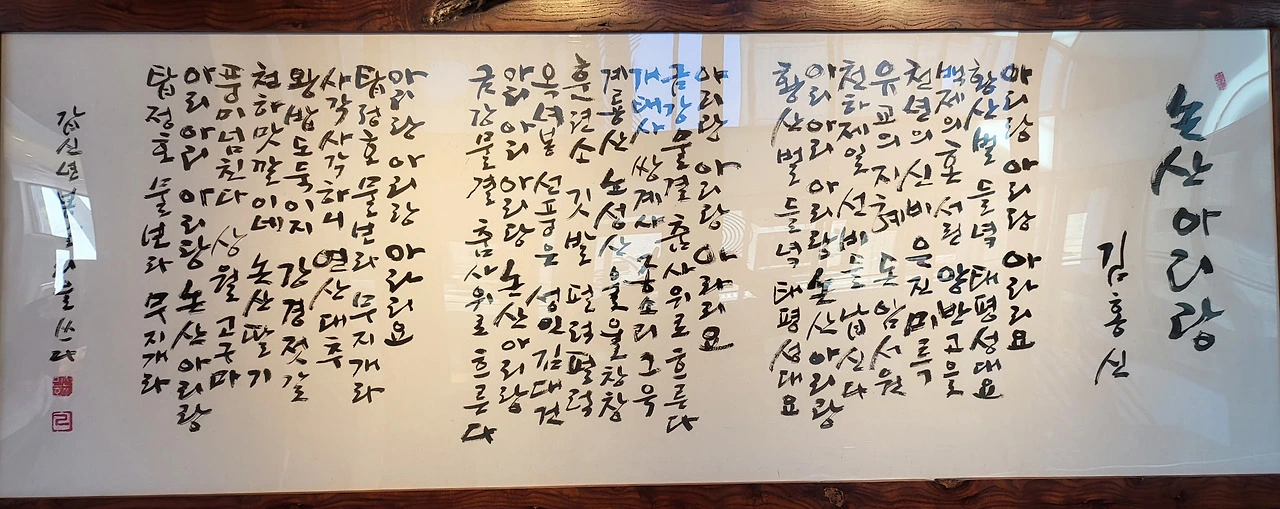 논산아리랑
김홍신
아리랑 아리랑 아라리요
황산벌 들녘 태평성대요
백제의 혼 서린 양반고을
천년의 신비 은진미륵
유교의 지혜 돈암서원
천하제일 선비들 납신다
아리아리 아리랑 논산아리랑
황산벌 들녘 태평성대요
아리랑 아리랑 아라리요
금강물결 춤사위로 흐른다
개태사 쌍계사 종소리 그윽
계룡산 노성산 울울창창
훈련소 깃발 펄럭펄럭
옥녀봉 선풍은 성인 김대건
아리아리 아리랑 논산아리랑
금강물결 춤사위로 흐른다
아리랑 아리랑 아라리요
탑정호 물보라 무지개라
사각사각하니 연산대추
왕밤도둑이지 강경젓갈
천하맛깔이네 논산딸기
풍미넘친다 상월고구마
아리아리 아리랑 논산아리랑
탑정호 물보라 무지개라
쓰다